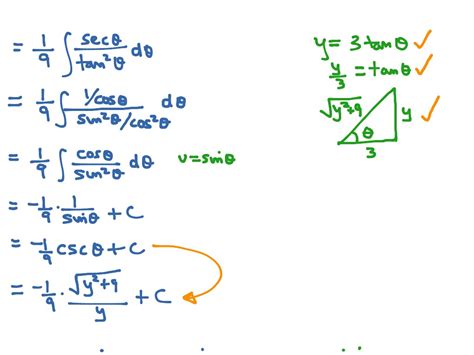 = 1/9 ∫ secθ/tan²θ dθ
= 1/9 ∫ (1/cosθ)/(sin²θ/cos²θ) dθ
= 1/9 ∫ cosθ/sin²θ dθ  u=sinθ
= -1/9 · 1/sinθ + C
= -1/9 cscθ + C
= -1/9 · √(y²+9)/y + C
y = 3tanθ ✓
y/3 = tanθ ✓
√(y²+9) θ y ✓
3